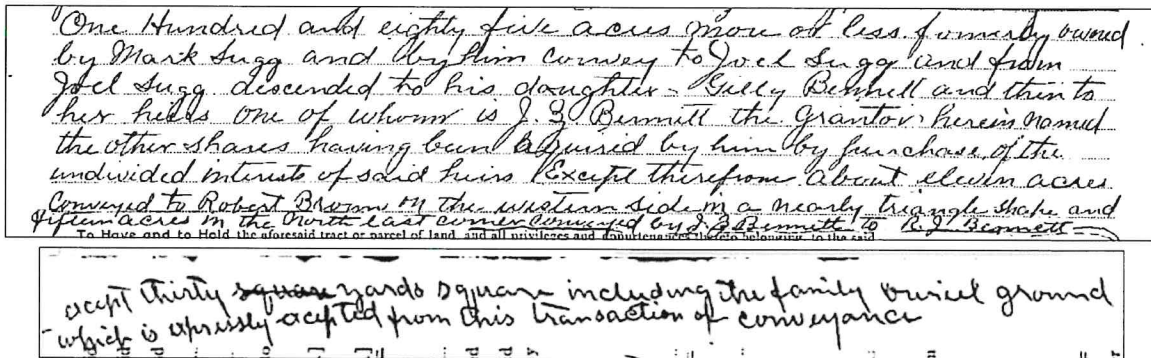 One Hundred and eighty five acres more or less formerly owned
by Mark Sugg and by him convey to Joel Sugg and from
Joel Sugg descended to his daughter - Gilly Bennett and then to
her heirs one of whom is J. Z. Bennett the Grantor herein named
the other shares having been aquired by him by purchase of the
undivided interests of said heirs Except therefrom about eleven acres
Conveyed to Robert Brown on the western side in a nearly triangle shape and
fifteen acres in the North East corner conveyed by J. Z. Bennett to R. J. Bennett
To Have and to Hold the aforesaid tract or parcel of land and all privileges and appurtenances thereto belonging, to the said
except thirty square yards square including the family buriel ground
which is expressly excepted from this transaction of conveyance